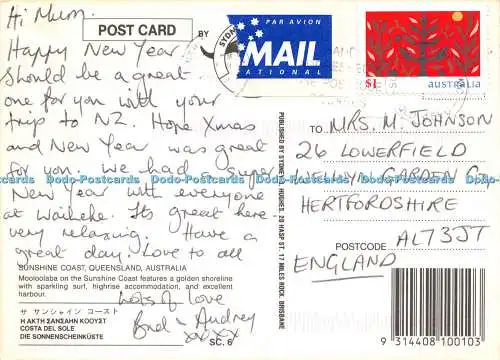 Hi Mum.
POST CARD
BY
PAR AVION
MAIL
NATIONAL
$1 AUSTRALIA
Happy New Year
Should be a great
one for you with your
trip to NZ. Hope Xmas
and New Year was great
for you. We had a super
New Year with everyone
at Waiheke. Its great here-
very relaxing. Have a
great day. Love to all
Lots of love
Audrey
xxxx
TO MRS. M. JOHNSON
26 LOWERFIELD
WELWYN GARDEN
HERTFORDSHIRE
POSTCODE AL7 3JT
ENGLAND
Dodo-Postcards Dodo-Postcards Dodo-Postcards Dodo-Postcards
SUNSHINE COAST, QUEENSLAND, AUSTRALIA
Mooloolaba on the Sunshine Coast features a golden shoreline
with sparkling surf, highrise accommodation, and excellent
harbour.
ザ サンシャイン コースト
Η ΑΚΤΗ ΣΑΝΣΑΗΝ ΚΟΟΥΣΤ
COSTA DEL SOLE
DIE SONNENSCHEINKÜSTE
SC. 6
PUBLISHED BY SYDNEY HUGHES, 20 HASP ST. 17 MILES ROCK, BRISBANE
9 314408 100103